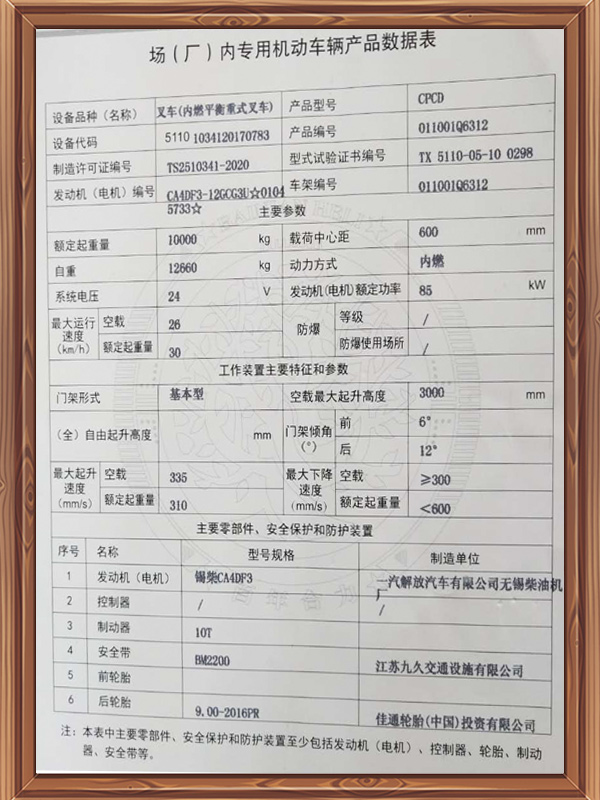 场(厂)内专用机动车辆产品数据表
设备品种(名称) 叉车(内燃平衡重式叉车) 产品型号 CPCD
设备代码 5110 1034120170783 产品编号 011001Q6312
制造许可证编号 TS2510341-2020 型式试验证书编号 TX 5110-05-10 0298
发动机(电机)编号 CA4DF3-12GCG3U☆0104 车架编号 011001Q6312
5733☆
主要参数
额定起重量 10000 kg 载荷中心距 600 mm
自重 12660 kg 动力方式 内燃
系统电压 24 V 发动机(电机)额定功率 85 kW
最大运行速度(km/h) 空载 26 防爆 等级 /
额定起重量 30 防爆使用场所 /
工作装置主要特征和参数
门架形式 基本型 空载最大起升高度 3000 mm
(全)自由起升高度 mm 门架倾角(°) 前 6°
后 12°
最大起升速度(mm/s) 空载 335 最大下降速度(mm/s) 空载 ≥300
额定起重量 310 额定起重量 <600
主要零部件、安全保护和防护装置
序号 名称 型号规格 制造单位
1 发动机(电机) 锡柴CA4DF3 一汽解放汽车有限公司无锡柴油机
厂
2 控制器 / /
3 制动器 10T
4 安全带 BM2200 江苏九久交通设施有限公司
5 前轮胎
6 后轮胎 9.00-2016PR 佳通轮胎(中国)投资有限公司
注:本表中主要零部件、安全保护和防护装置至少包括发动机(电机)、控制器、轮胎、制动
器、安全带等。